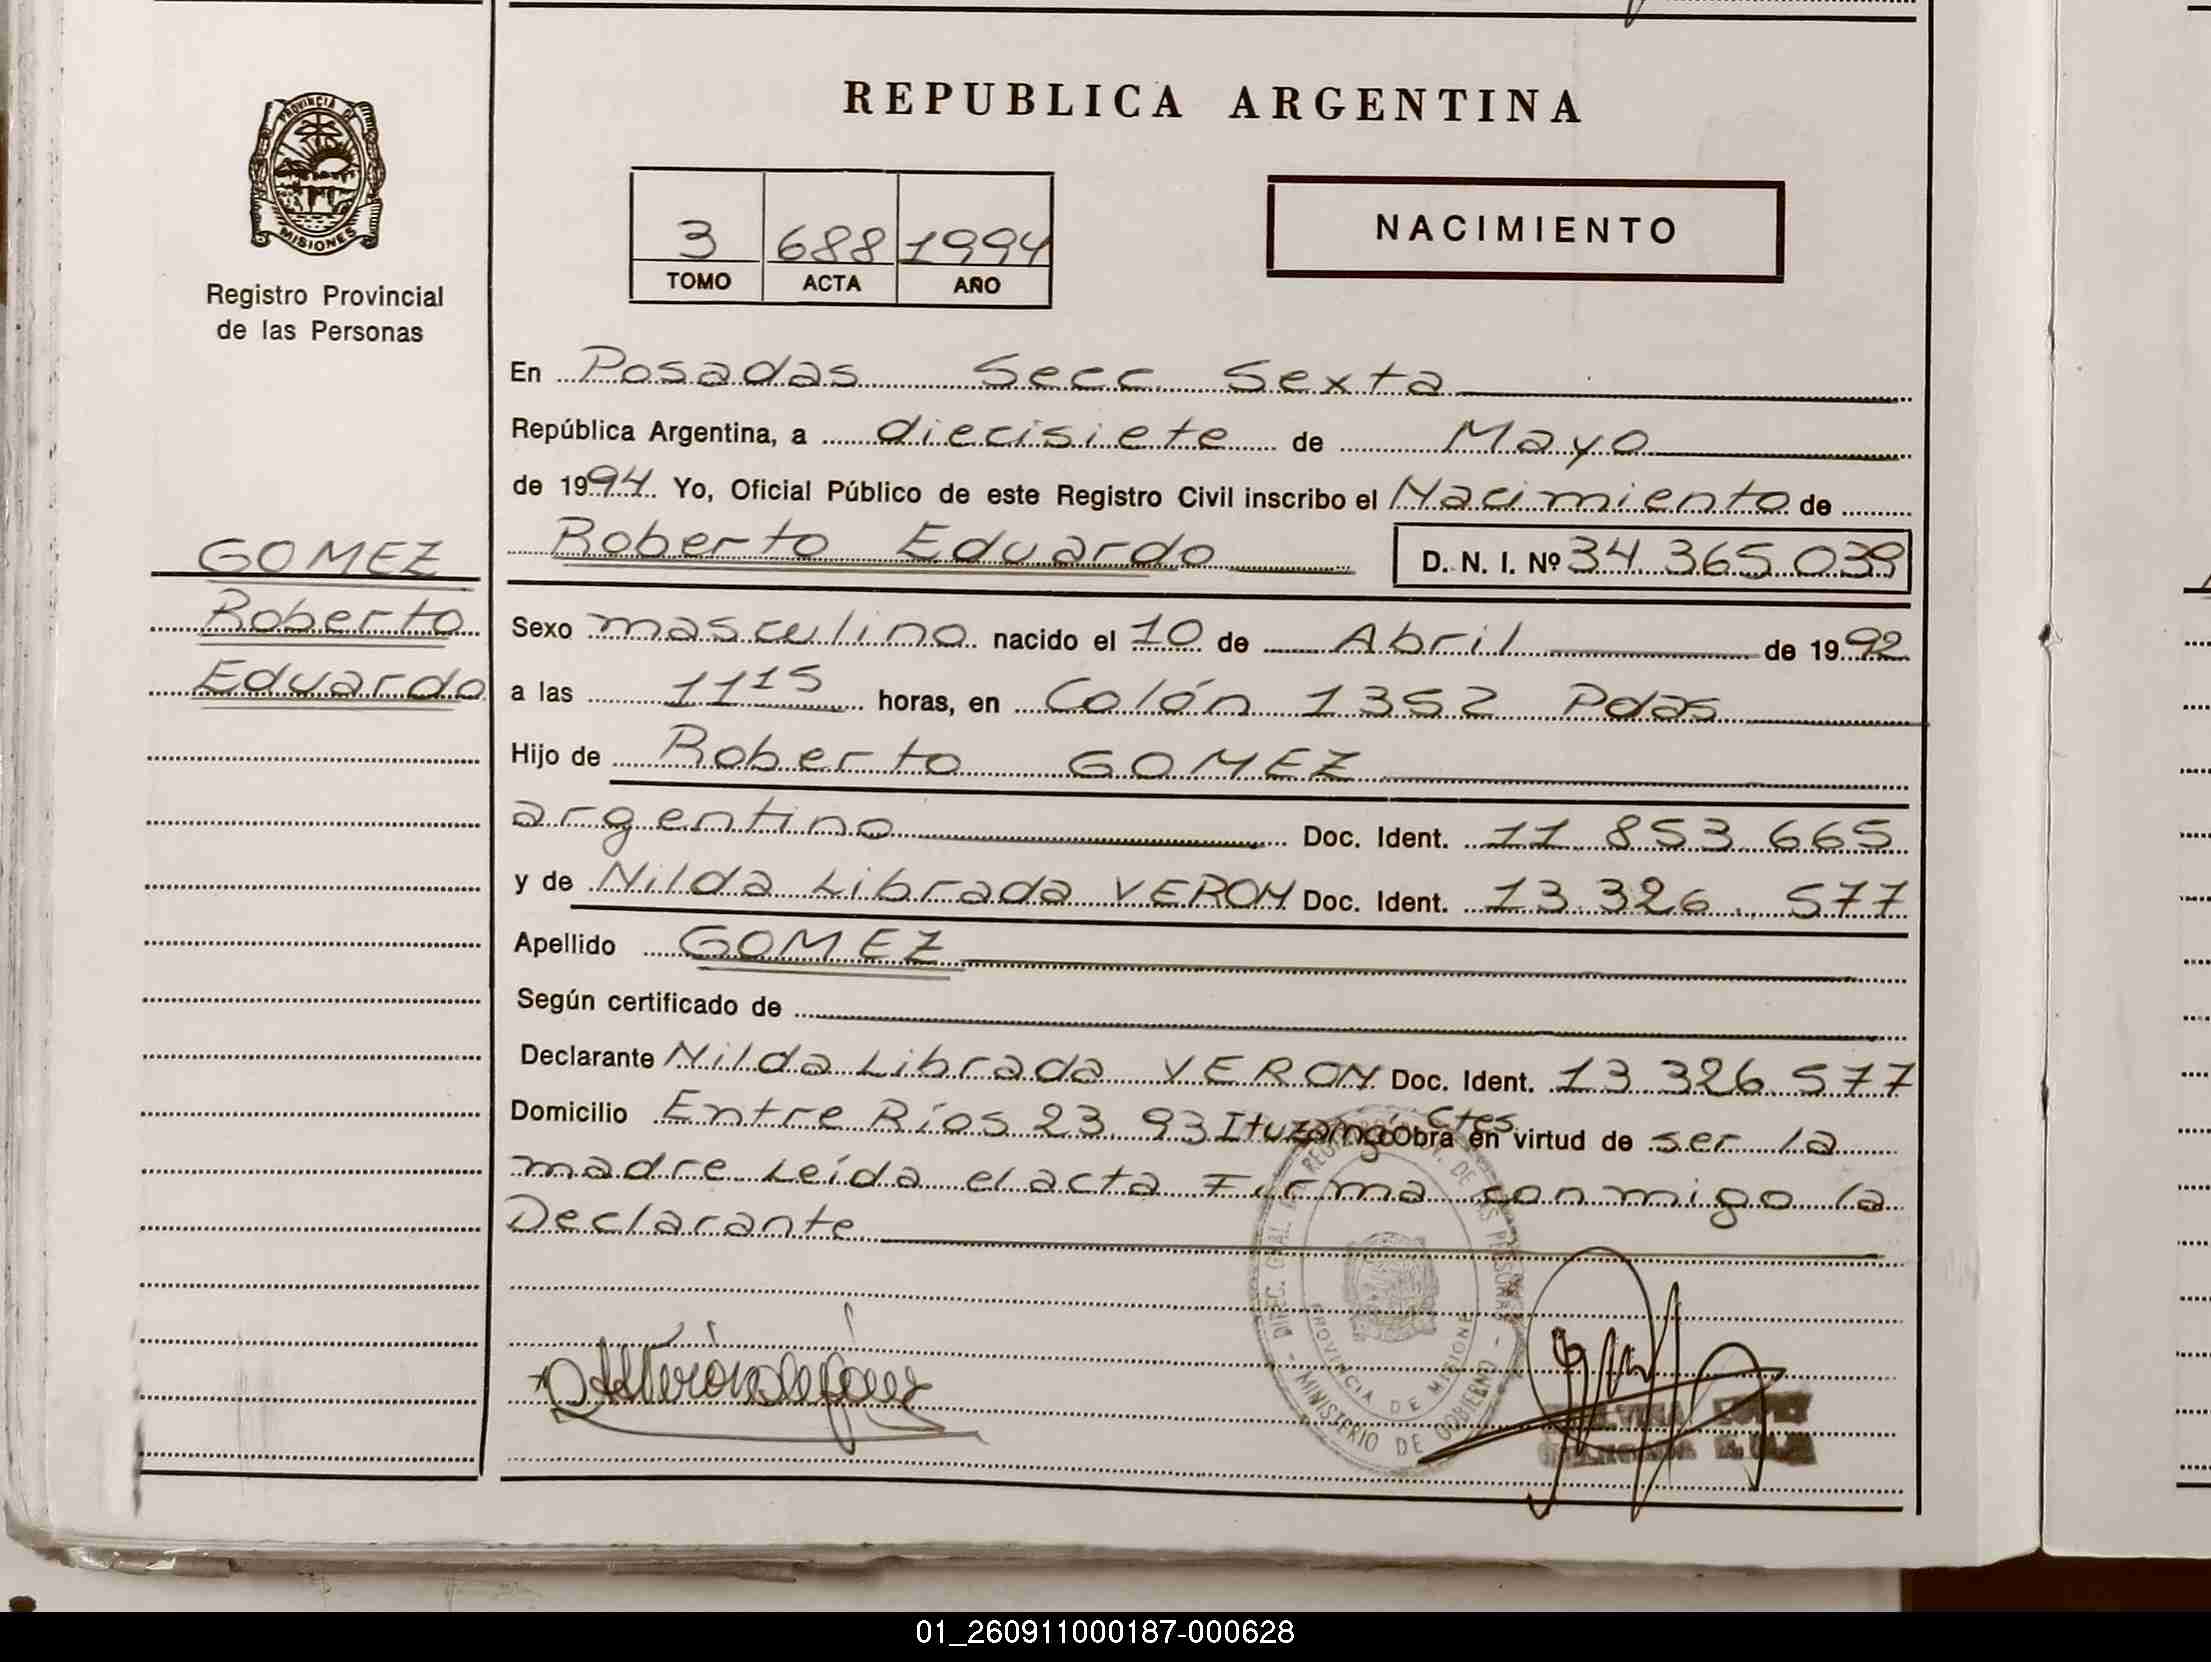 REPUBLICA ARGENTINA
PROVINCIA DE
MISIONES
Registro Provincial
de las Personas
3 688 1994
TOMO ACTA AÑO
NACIMIENTO
En Posadas Secc Sexta
República Argentina, a diecisiete de Mayo
de 1994 Yo, Oficial Público de este Registro Civil inscribo el Nacimiento de
GOMEZ
Roberto
Eduardo
Roberto Eduardo D. N. I. Nº 34 365 039
Sexo masculino nacido el 10 de Abril de 1992
a las 11 15 horas, en Colón 1352 Pdas
Hijo de Roberto GOMEZ
argentino Doc. Ident. 11 853 665
y de Nilda Librada VERON Doc. Ident. 13 326 577
Apellido GOMEZ
Según certificado de
Declarante Nilda Librada VERON Doc. Ident. 13 326 577
Domicilio Entre Ríos 23 93 Ituzangó Ctes Obra en virtud de ser la
madre Leída el acta Firma conmigo la
Declarante
DIREC. GRAL. DE REGISTRO PROV. DE LAS PERSONAS
PROVINCIA DE MISIONES
MINISTERIO DE GOBIERNO
01_260911000187-000628